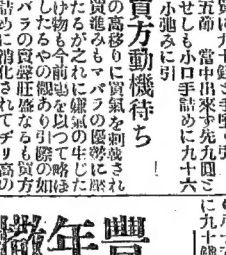 に九十錢
五節 當中出來ず先九回ミ
せしも小口手詰めに九十六
小弛みに引
買方動機待ち
の高移りに買氣を刺戟され
買進みもマバラの優勢に壓
たるが之れに嫌氣の生じた
け物も今前場を以つて略ぼ
したるやの觀あり引際の如
バラの買意旺盛なるも買方
詰めに消化されてヂリ高の
豐年